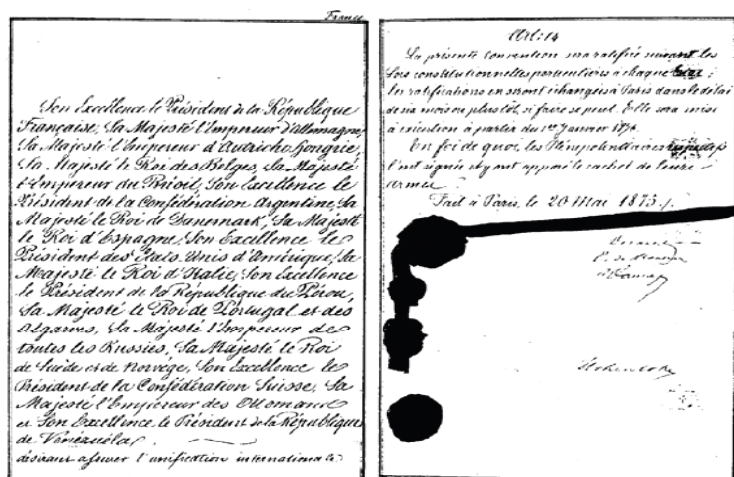 France
Son Excellence le Président de la République
Française, Sa Majesté l'Empereur d'Allemagne,
Sa Majesté l'Empereur d'Autriche-Hongrie,
Sa Majesté le Roi des Belges, Sa Majesté
l'Empereur du Brésil, Son Excellence le
Président de la Confédération Argentine, Sa
Majesté le Roi de Danemark, Sa Majesté
le Roi d'Espagne, Son Excellence le
Président des Etats-Unis d'Amérique, Sa
Majesté le Roi d'Italie, Son Excellence
le Président de la République du Pérou,
Sa Majesté le Roi de Portugal et des
Algarves, Sa Majesté l'Empereur de
toutes les Russies, Sa Majesté le Roi
de Suède et de Norvège, Son Excellence le
Président de la Confédération Suisse, Sa
Majesté l'Empereur des Ottomans
et Son Excellence le Président de la République
de Vénézuéla,
désirant assurer l'unification internationale
Art: 14
La présente convention sera ratifiée suivant les
lois constitutionnelles particulières à chaque Etat ;
les ratifications en seront échangées à Paris dans le délai
de six mois ou plus tôt, si faire se peut. Elle sera mise
à exécution à partir du 1er Janvier 1876.
En foi de quoi, les Plénipotentiaires respectifs
l'ont signée et y ont apposé le cachet de leurs
armes.
Fait à Paris, le 20 Mai 1875.
Hohenlohe